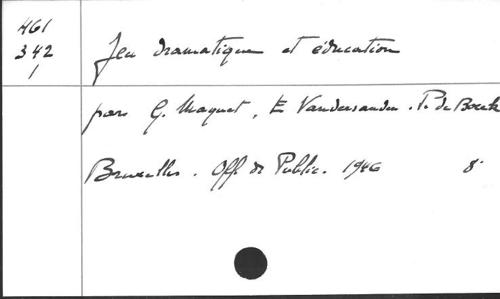 461
342
1
Jeu dramatique et éducation
par G. Maquet, E. Vandersanden. P. de Bock
Bruxelles. Off. de Public. 1946 8°